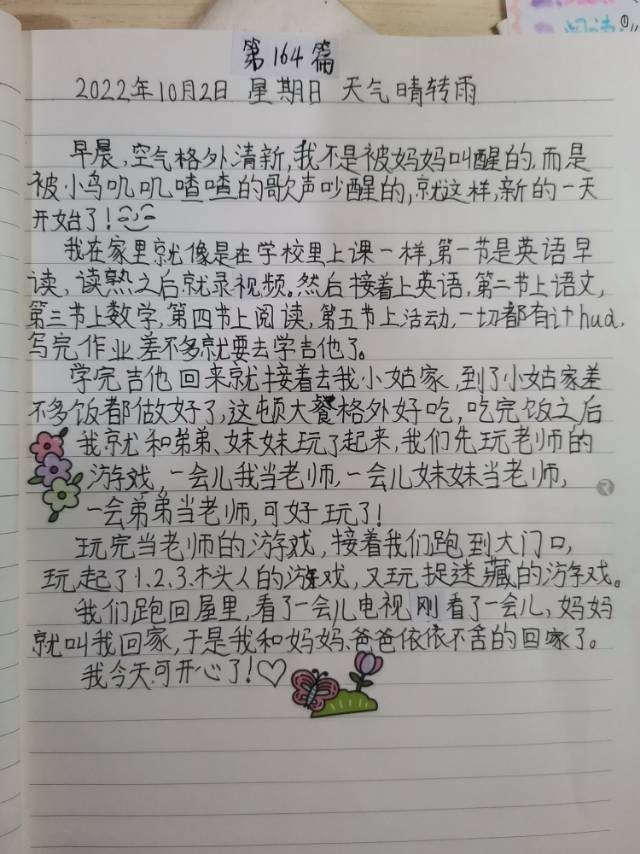 第164篇
2022年10月2日 星期日 天气晴转雨
早晨,空气格外清新,我不是被妈妈叫醒的,而是
被小鸟叽叽喳喳的歌声吵醒的,就这样,新的一天
开始了!
我在家里就像是在学校里上课一样,第一节是英语早
读,读熟之后就录视频。然后接着上英语,第二节上语文,
第三节上数学,第四节上阅读,第五节上活动,一切都有计hua,
写完作业差不多就要去学吉他了。
学完吉他回来就接着去我小姑家,到了小姑家差
不多饭都做好了,这顿大餐格外好吃,吃完饭之后
我就和弟弟、妹妹玩了起来,我们先玩老师的
游戏,一会儿我当老师,一会儿妹妹当老师,
一会弟弟当老师,可好玩了!
玩完当老师的游戏,接着我们跑到大门口,
玩起了1.2.3.木头人的游戏,又玩捉迷藏的游戏。
我们跑回屋里,看了一会儿电视,刚看了一会儿,妈妈
就叫我回家,于是我和妈妈、爸爸依依不舍的回家了。
我今天可开心了!♡